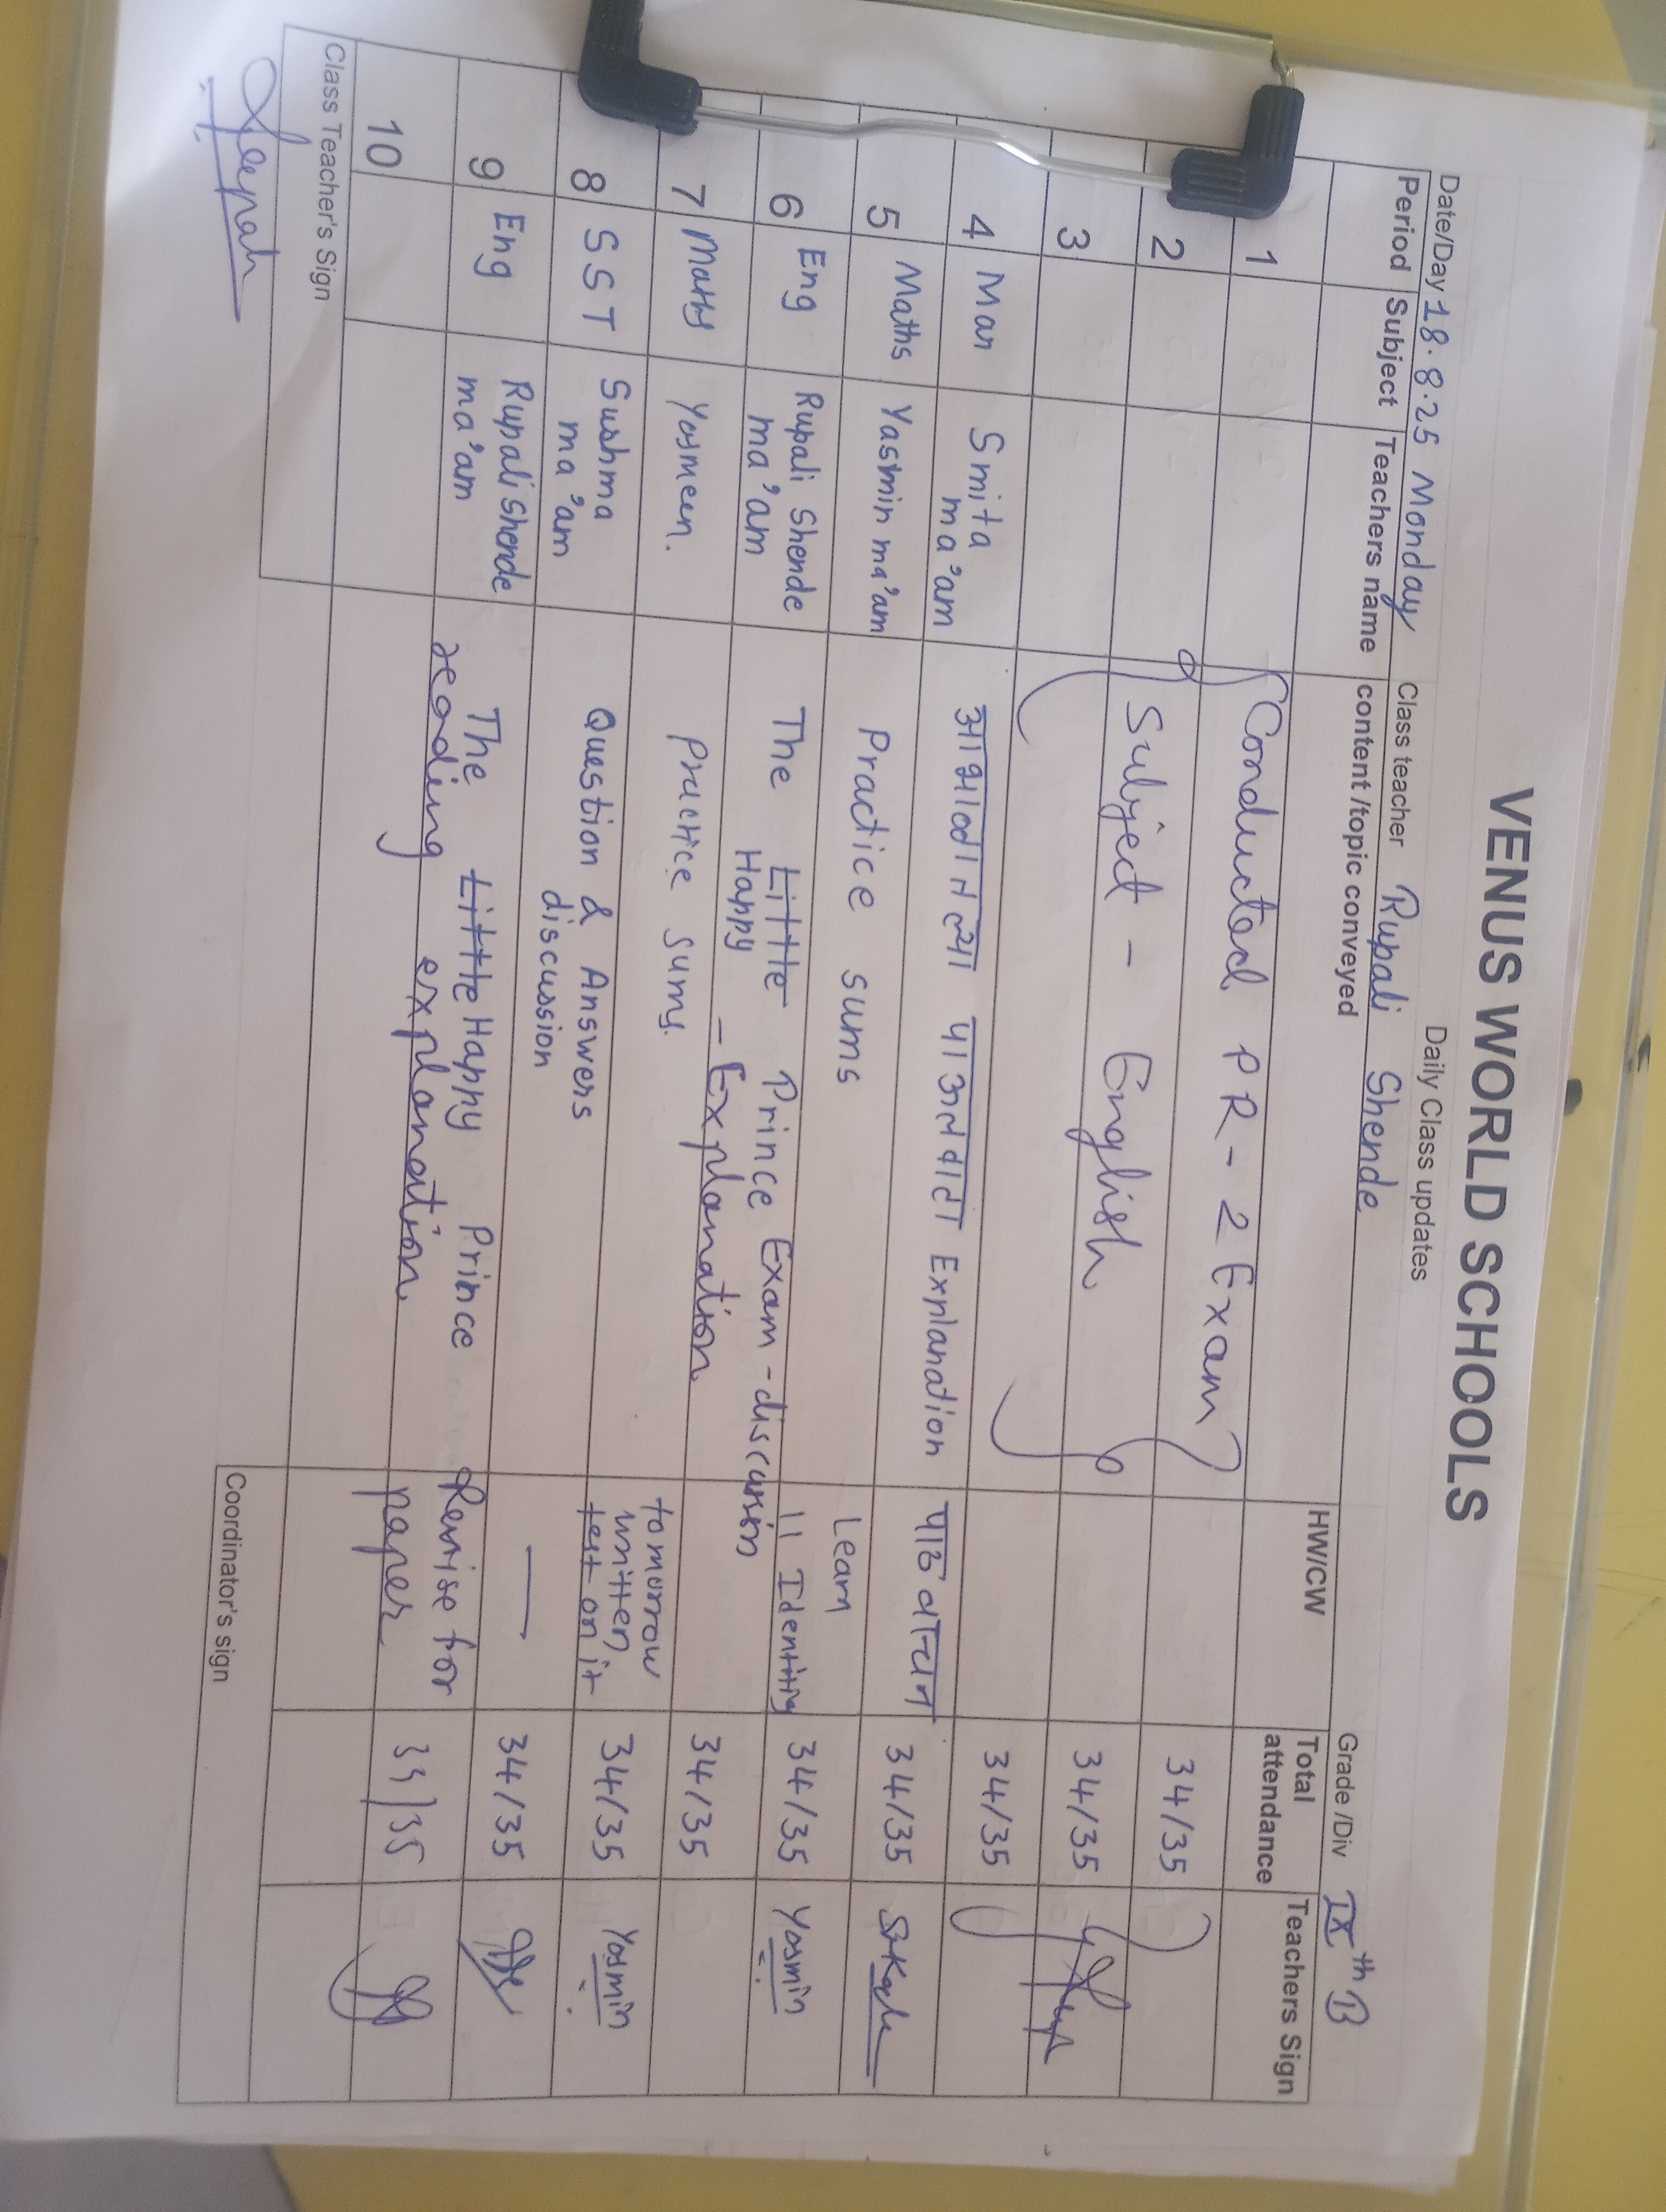 VENUS WORLD SCHOOLS
Daily Class updates
Date/Day 18.8.25 Monday Class teacher Rupali Shende Grade /Div IXth B
Period Subject Teachers name content /topic conveyed HW/CW Total attendance Teachers Sign
1 Conducted PR-2 Exam 34/35
2 Subject - English 34/35
3 34/35
4 Mar Smita ma'am Explanation 34/35
5 Maths Yasmin ma'am Practice sums Learn 11 Identity 34/35 Yasmin
6 Eng Rupali Shende ma'am The Little Happy Prince Exam - discussion - Explanation 34/35
7 Maths Yasmeen. Practice sums. tomorrow written test on it 34/35 Yasmin
8 SST Sushma ma'am Question & Answers discussion — 34/35
9 Eng Rupali Shende ma'am The Little Happy Prince reading explanation. Revise for paper
10
Class Teacher's Sign
Coordinator's sign